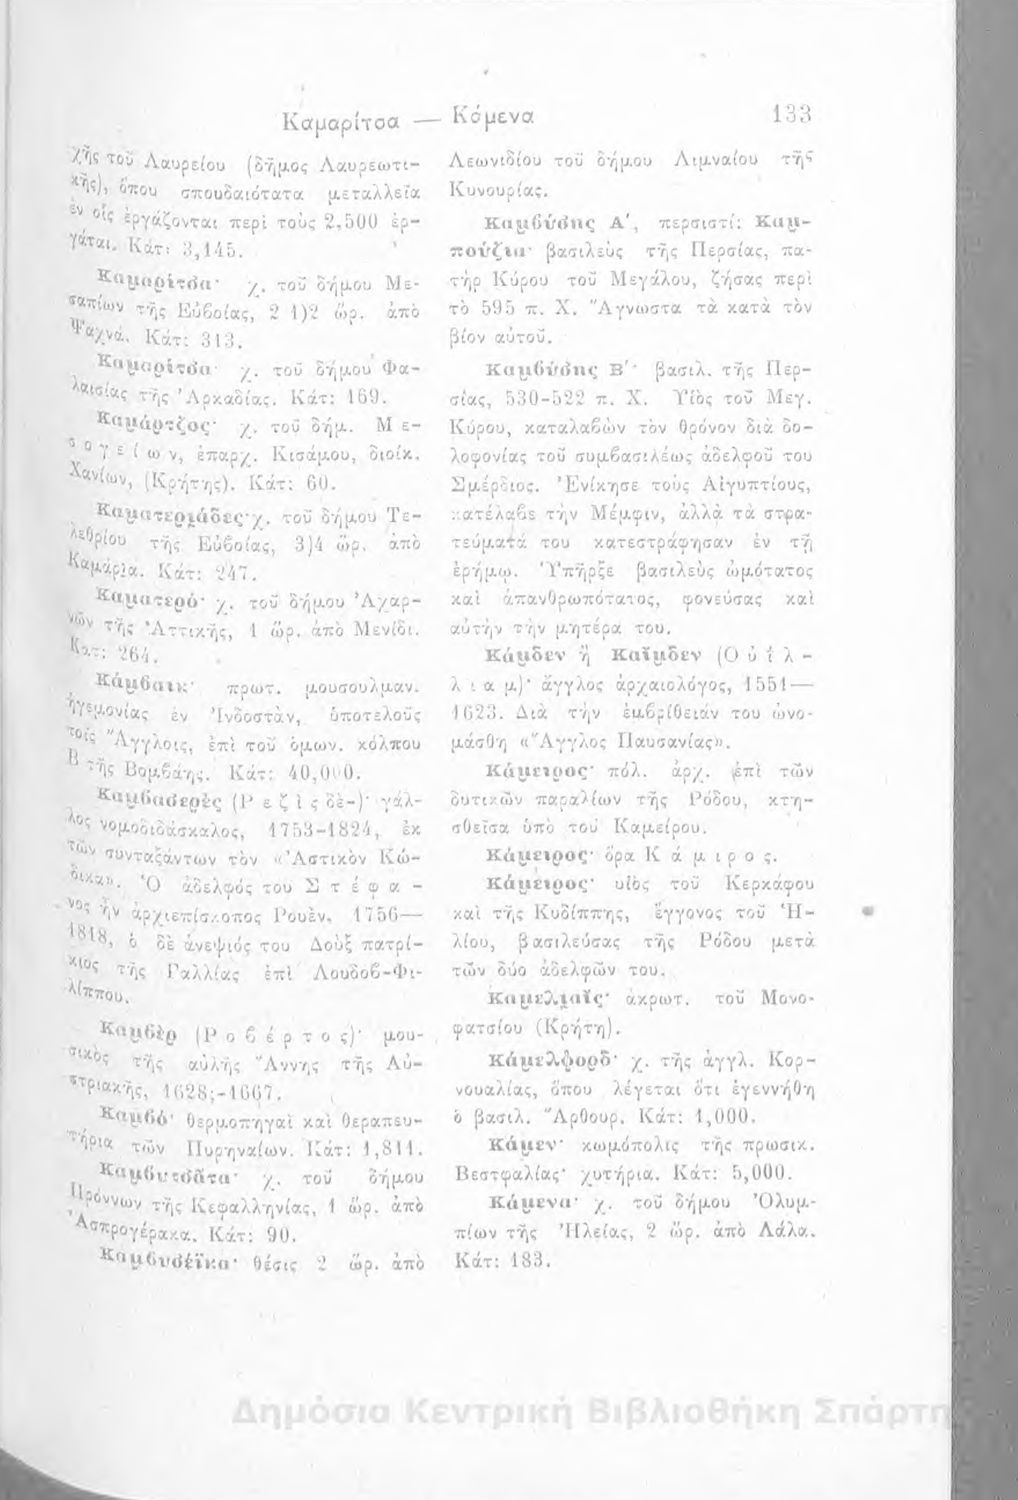 Καμαρίτσα — Κάμενα 133
χῆς τοῦ Λαυρείου (δῆμος Λαυρεωτι-
κῆς), ὅπου σπουδαιότατα μεταλλεῖα
ἐν οἷς ἐργάζονται περὶ τοὺς 2,500 ἐρ-
γάται. Κάτ: 3,145.
Καμαρίτσα· χ. τοῦ δήμου Με-
σαπίων τῆς Εὐβοίας, 2 1)2 ὥρ. ἀπὸ
Ψαχνά. Κάτ: 313.
Καμαρίτσα· χ. τοῦ δήμου Φα-
λαισίας τῆς Ἀρκαδίας. Κάτ: 169.
Καμάρτζος· χ. τοῦ δήμ. Με-
σογείων, ἐπαρχ. Κισάμου, διοίκ.
Χανίων, (Κρήτης). Κάτ: 60.
Καματεριάδες· χ. τοῦ δήμου Τε-
λεθρίου τῆς Εὐβοίας, 3)4 ὥρ. ἀπὸ
Καμάρια. Κάτ: 247.
Καματερό· χ. τοῦ δήμου Ἀχαρ-
νῶν τῆς Ἀττικῆς, 1 ὥρ. ἀπὸ Μενίδι.
Κατ: 264.
Κάμβαικ· πρωτ. μουσουλμαν.
ἡγεμονίας ἐν Ἰνδοστάν, ὑποτελοῦς
τοῖς Ἄγγλοις, ἐπὶ τοῦ ὁμων. κόλπου
Β τῆς Βομβάης. Κάτ: 40,000.
Καμβασερὲς (Ρεζὶς δὲ-)· γάλ-
λος νομοδιδάσκαλος, 1753-1824, ἐκ
τῶν συνταξάντων τὸν «Ἀστικὸν Κώ-
δικα». Ὁ ἀδελφός του Στέφα-
νος ἦν ἀρχιεπίσκοπος Ρουέν, 1756—
1818, ὁ δὲ ἀνεψιός του Δοὺξ πατρί-
κιος τῆς Γαλλίας ἐπὶ Λουδοβ-Φι-
λίππου.
Καμβὲρ (Ροβέρτος)· μου-
σικὸς τῆς αὐλῆς Ἄννης τῆς Αὐ-
στριακῆς, 1628;-1667.
Καμβό· θερμοπηγαὶ καὶ θεραπευ-
τήρια τῶν Πυρηναίων. Κάτ: 1,811.
Καμβυτσᾶτα· χ. τοῦ δήμου
Πρόννων τῆς Κεφαλληνίας, 1 ὥρ. ἀπὸ
Ἀσπρογέρακα. Κάτ: 90.
Καμβυσέϊκα· θέσις 2 ὥρ. ἀπὸ
Λεωνιδίου τοῦ δήμου Λιμναίου τῆς
Κυνουρίας.
Καμβύσης Α΄, περσιστί: Καμ-
πούζια· βασιλεὺς τῆς Περσίας, πα-
τὴρ Κύρου τοῦ Μεγάλου, ζήσας περὶ
τὸ 595 π. Χ. Ἄγνωστα τὰ κατὰ τὸν
βίον αὐτοῦ.
Καμβύσης Β΄· βασιλ. τῆς Περ-
σίας, 530-522 π. Χ. Υἱὸς τοῦ Μεγ.
Κύρου, καταλαβὼν τὸν θρόνον διὰ δο-
λοφονίας τοῦ συμβασιλέως ἀδελφοῦ του
Σμέρδιος. Ἐνίκησε τοὺς Αἰγυπτίους,
κατέλαβε τὴν Μέμφιν, ἀλλὰ τὰ στρα-
τεύματά του κατεστράφησαν ἐν τῇ
ἐρήμῳ. Ὑπῆρξε βασιλεὺς ὠμότατος
καὶ ἀπανθρωπότατος, φονεύσας καὶ
αὐτὴν τὴν μητέρα του.
Κάμδεν ἢ Καῖμδεν (Οὐΐλ-
λιαμ)· ἄγγλος ἀρχαιολόγος, 1551—
1623. Διὰ τὴν ἐμβρίθειάν του ὠνο-
μάσθη «Ἄγγλος Παυσανίας».
Κάμειρος· πόλ. ἀρχ. ἐπὶ τῶν
δυτικῶν παραλίων τῆς Ρόδου, κτη-
σθεῖσα ὑπὸ τοῦ Καμείρου.
Κάμειρος· ὅρα Κάμιρος.
Κάμειρος· υἱὸς τοῦ Κερκάφου
καὶ τῆς Κυδίππης, ἔγγονος τοῦ Ἡ-
λίου, βασιλεύσας τῆς Ρόδου μετὰ
τῶν δύο ἀδελφῶν του.
Καμελιαῖς· ἀκρωτ. τοῦ Μονο-
φατσίου (Κρήτη).
Κάμελφορδ· χ. τῆς ἀγγλ. Κορ-
νουαλίας, ὅπου λέγεται ὅτι ἐγεννήθη
ὁ βασιλ. Ἄρθουρ. Κάτ: 1,000.
Κάμεν· κωμόπολις τῆς πρωσικ.
Βεστφαλίας· χυτήρια. Κάτ: 5,000.
Κάμενα· χ. τοῦ δήμου Ὀλυμ-
πίων τῆς Ἠλείας, 2 ὥρ. ἀπὸ Λάλα.
Κάτ: 183.
Δημόσια Κεντρική Βιβλιοθήκη Σπάρτη